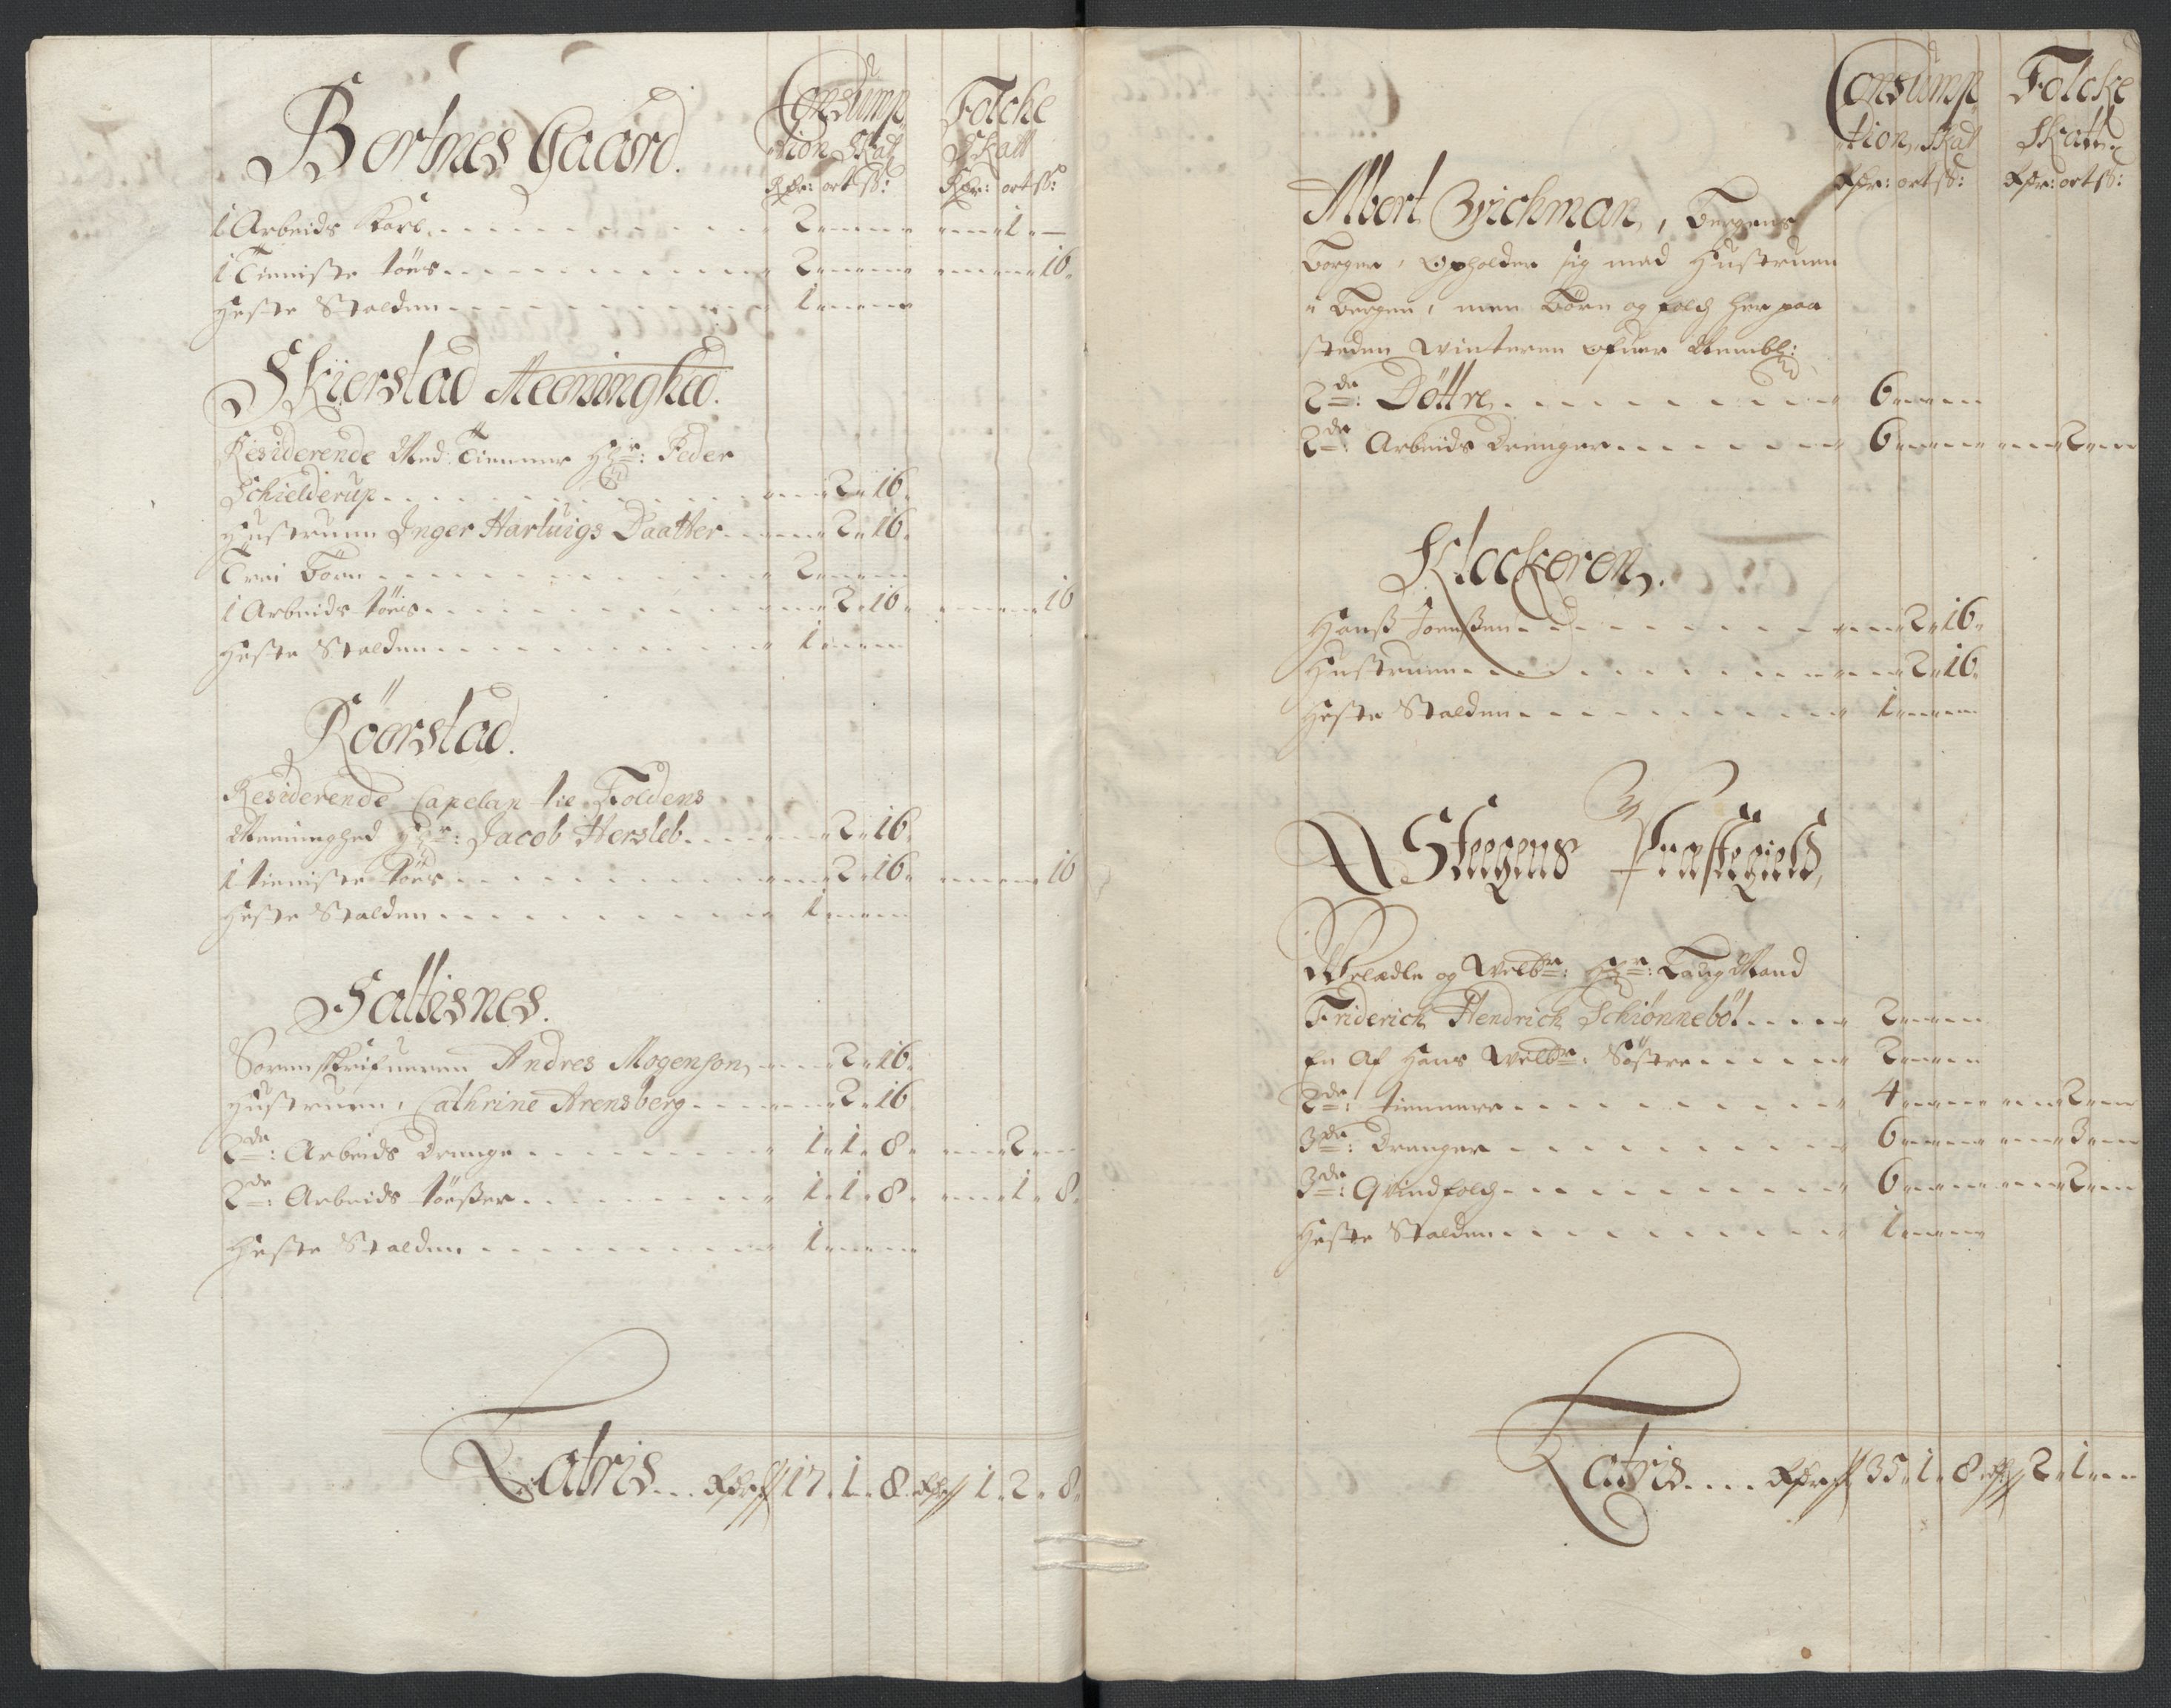 Consump Folcke
Bertnes Gaard.
tion Skat Skatt
Rdr: ort ß: Rdr: ort ß:
1 Arbeids Karl 2 1 –
1 Tienniste töes 2 16
Heste Stalden 1
Skierstad Meeninghed.
Residerende Med Tienner Hr: Peder
Schielderup 2 16
Hustruen Inger Hartuigs Daatter 2 16
Trei Börn 2
1 Arbeids töes 2 16 16
Heste Stalden 1
Röerstad.
Residerende Capelan til Foldens
Meninghed Hr: Jacob Hersleb 2 16
1 tienniste töes 2 16 16
Heste Stalden 1
Saltisnes.
Sorenskrifueren Andres Mogenson 2 16
Hustruen, Cathrine Arensberg 2 16
2de: Arbeids Drenge 1 1 8 2
2de: Arbeids töeßer 1 1 8 1 8
Heste Stalden 1
Latris Rdr 17 1 8 Rdr 1 2 8
Consump Folcke
tion Skat Skatt
Rdr: ort ß: Rdr: ort ß:
Albert Wichman, Bergens
Borger, Opholder sig med Hustruen
i Bergen, men Börn og folch her paa
steden Winteren ofuer
2de: Döttre 6
2de: Arbeids Drenger 6 2
Klockeren.
Hanß Joenßen 2 16
Hustruen 2 16
Heste Stalden 1
Steegens Præstegield,
Welædle og Welbr: Hr: Laug Mand
Friderich Hendrich Schiönneböl 2
En Af Hans Welbr: Söstre 2
2de: tiennere 4 2
3de: Drenger 6 3
3de: Qvindfolch 6 2
Heste Stalden 1
Latris Rdr 35 1 8 Rdr 2 1